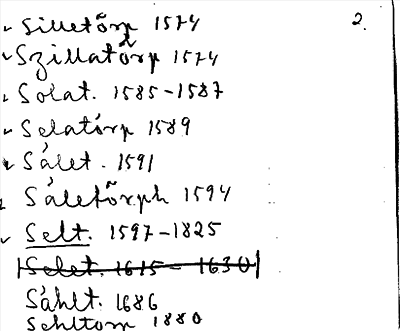 2.
Silletõrp 1574
Szillatõrp 1574
Solat. 1585-1587
Selatórp 1589
Sálet. 1591
Sáletõrph 1594
Selt. 1597-1825
Selet. 1615-1630
Sáhlt. 1686
Sehltom 1880